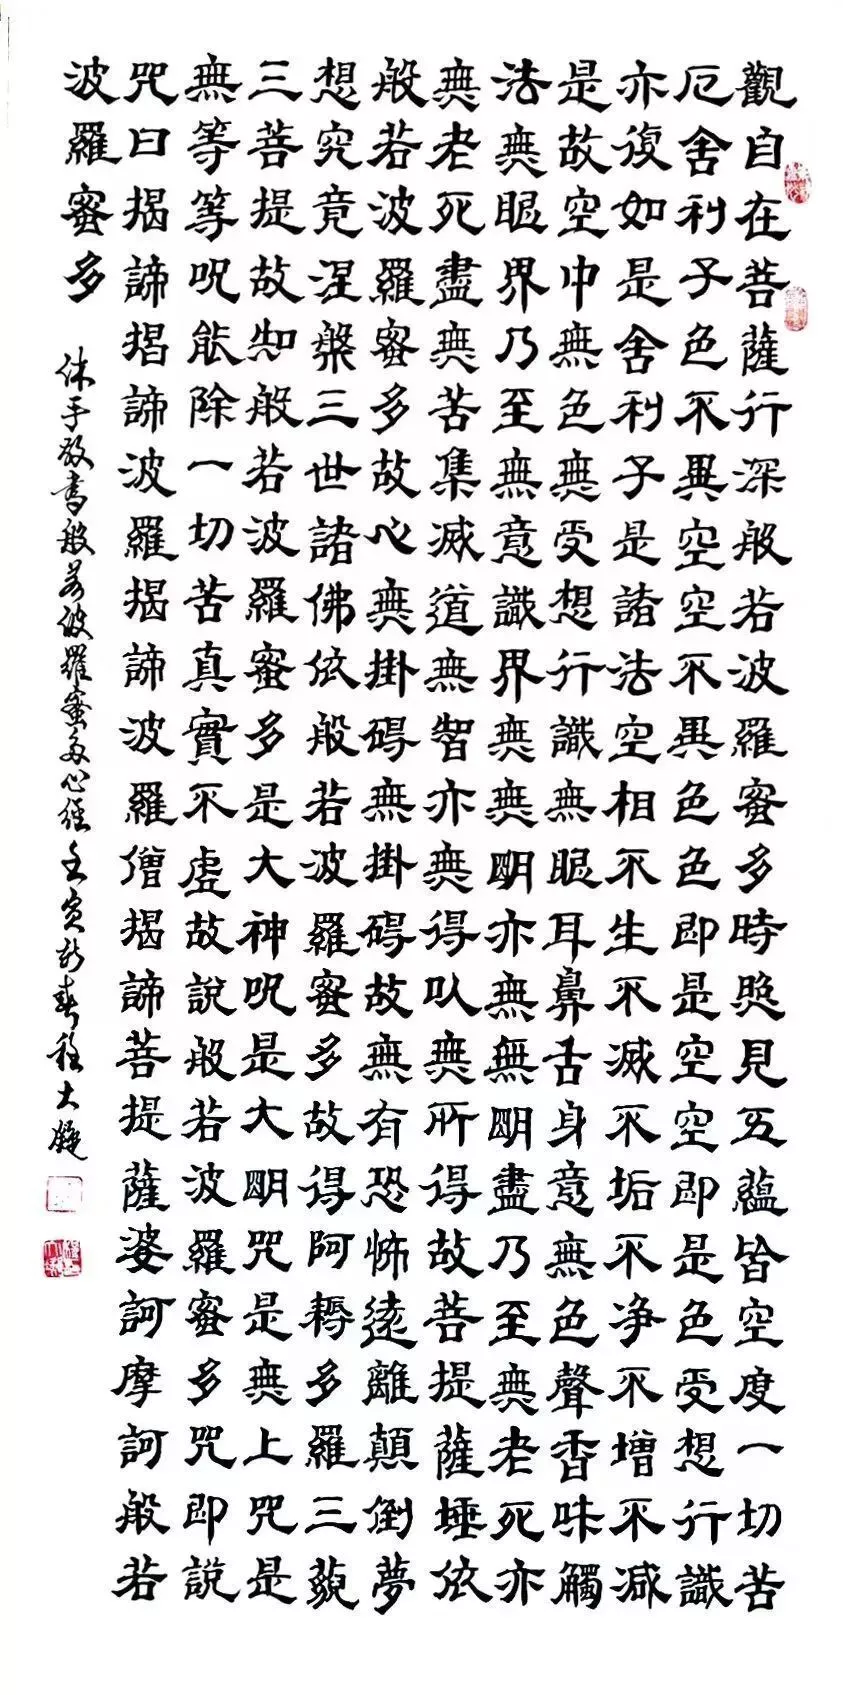 觀自在菩薩行深般若波羅蜜多時照見五蘊皆空度一切苦
厄舍利子色不異空空不異色色即是空空即是色受想行識
亦復如是舍利子是諸法空相不生不滅不垢不净不增不減
是故空中無色無受想行識無眼耳鼻舌身意無色聲香味觸
法無眼界乃至無意識界無無明亦無無明盡乃至無老死亦
無老死盡無苦集滅道無智亦無得以無所得故菩提薩埵依
般若波羅蜜多故心無掛碍無掛碍故無有恐怖遠離顛倒夢
想究竟涅槃三世諸佛依般若波羅蜜多故得阿耨多羅三藐
三菩提故知般若波羅蜜多是大神呪是大明咒是無上咒是
無等等呪能除一切苦真實不虛故說般若波羅蜜多咒即說
咒曰揭諦揭諦波羅揭諦波羅僧揭諦菩提薩婆訶摩訶般若
波羅蜜多
沐手敬書般若波羅蜜多心經壬寅新春程大